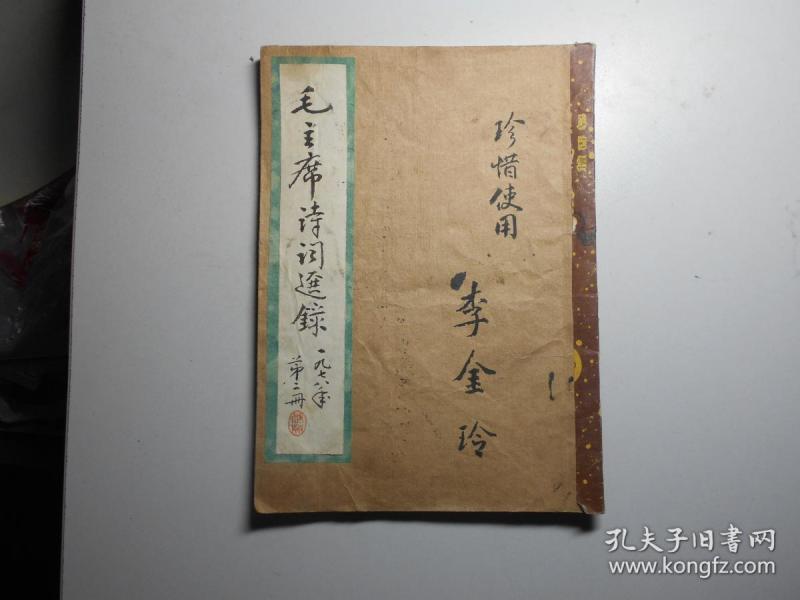 毛主席诗词選錄
一九七八年
第二册
珍惜使用
李金玲
孔夫子旧书网
www.kongfz.com